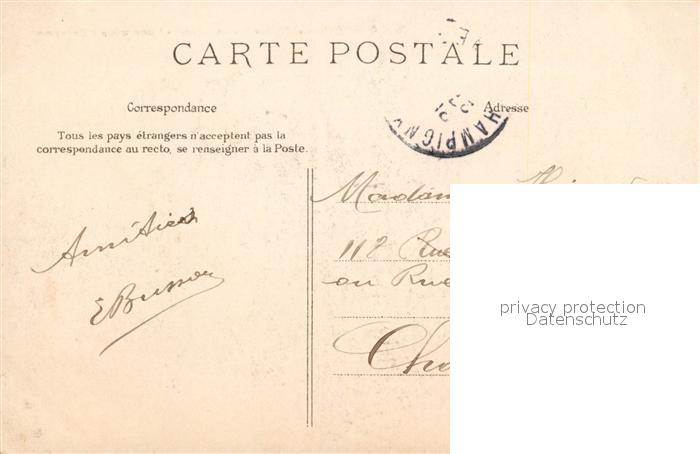 CARTE POSTALE
Correspondance
Adresse
Tous les pays étrangers n'acceptent pas la
correspondance au recto, se renseigner à la Poste.
HAMPIGN
Amitiés
E Busson
Madam
112 Rue
ou Rue
Cha
privacy protection
Datenschutz